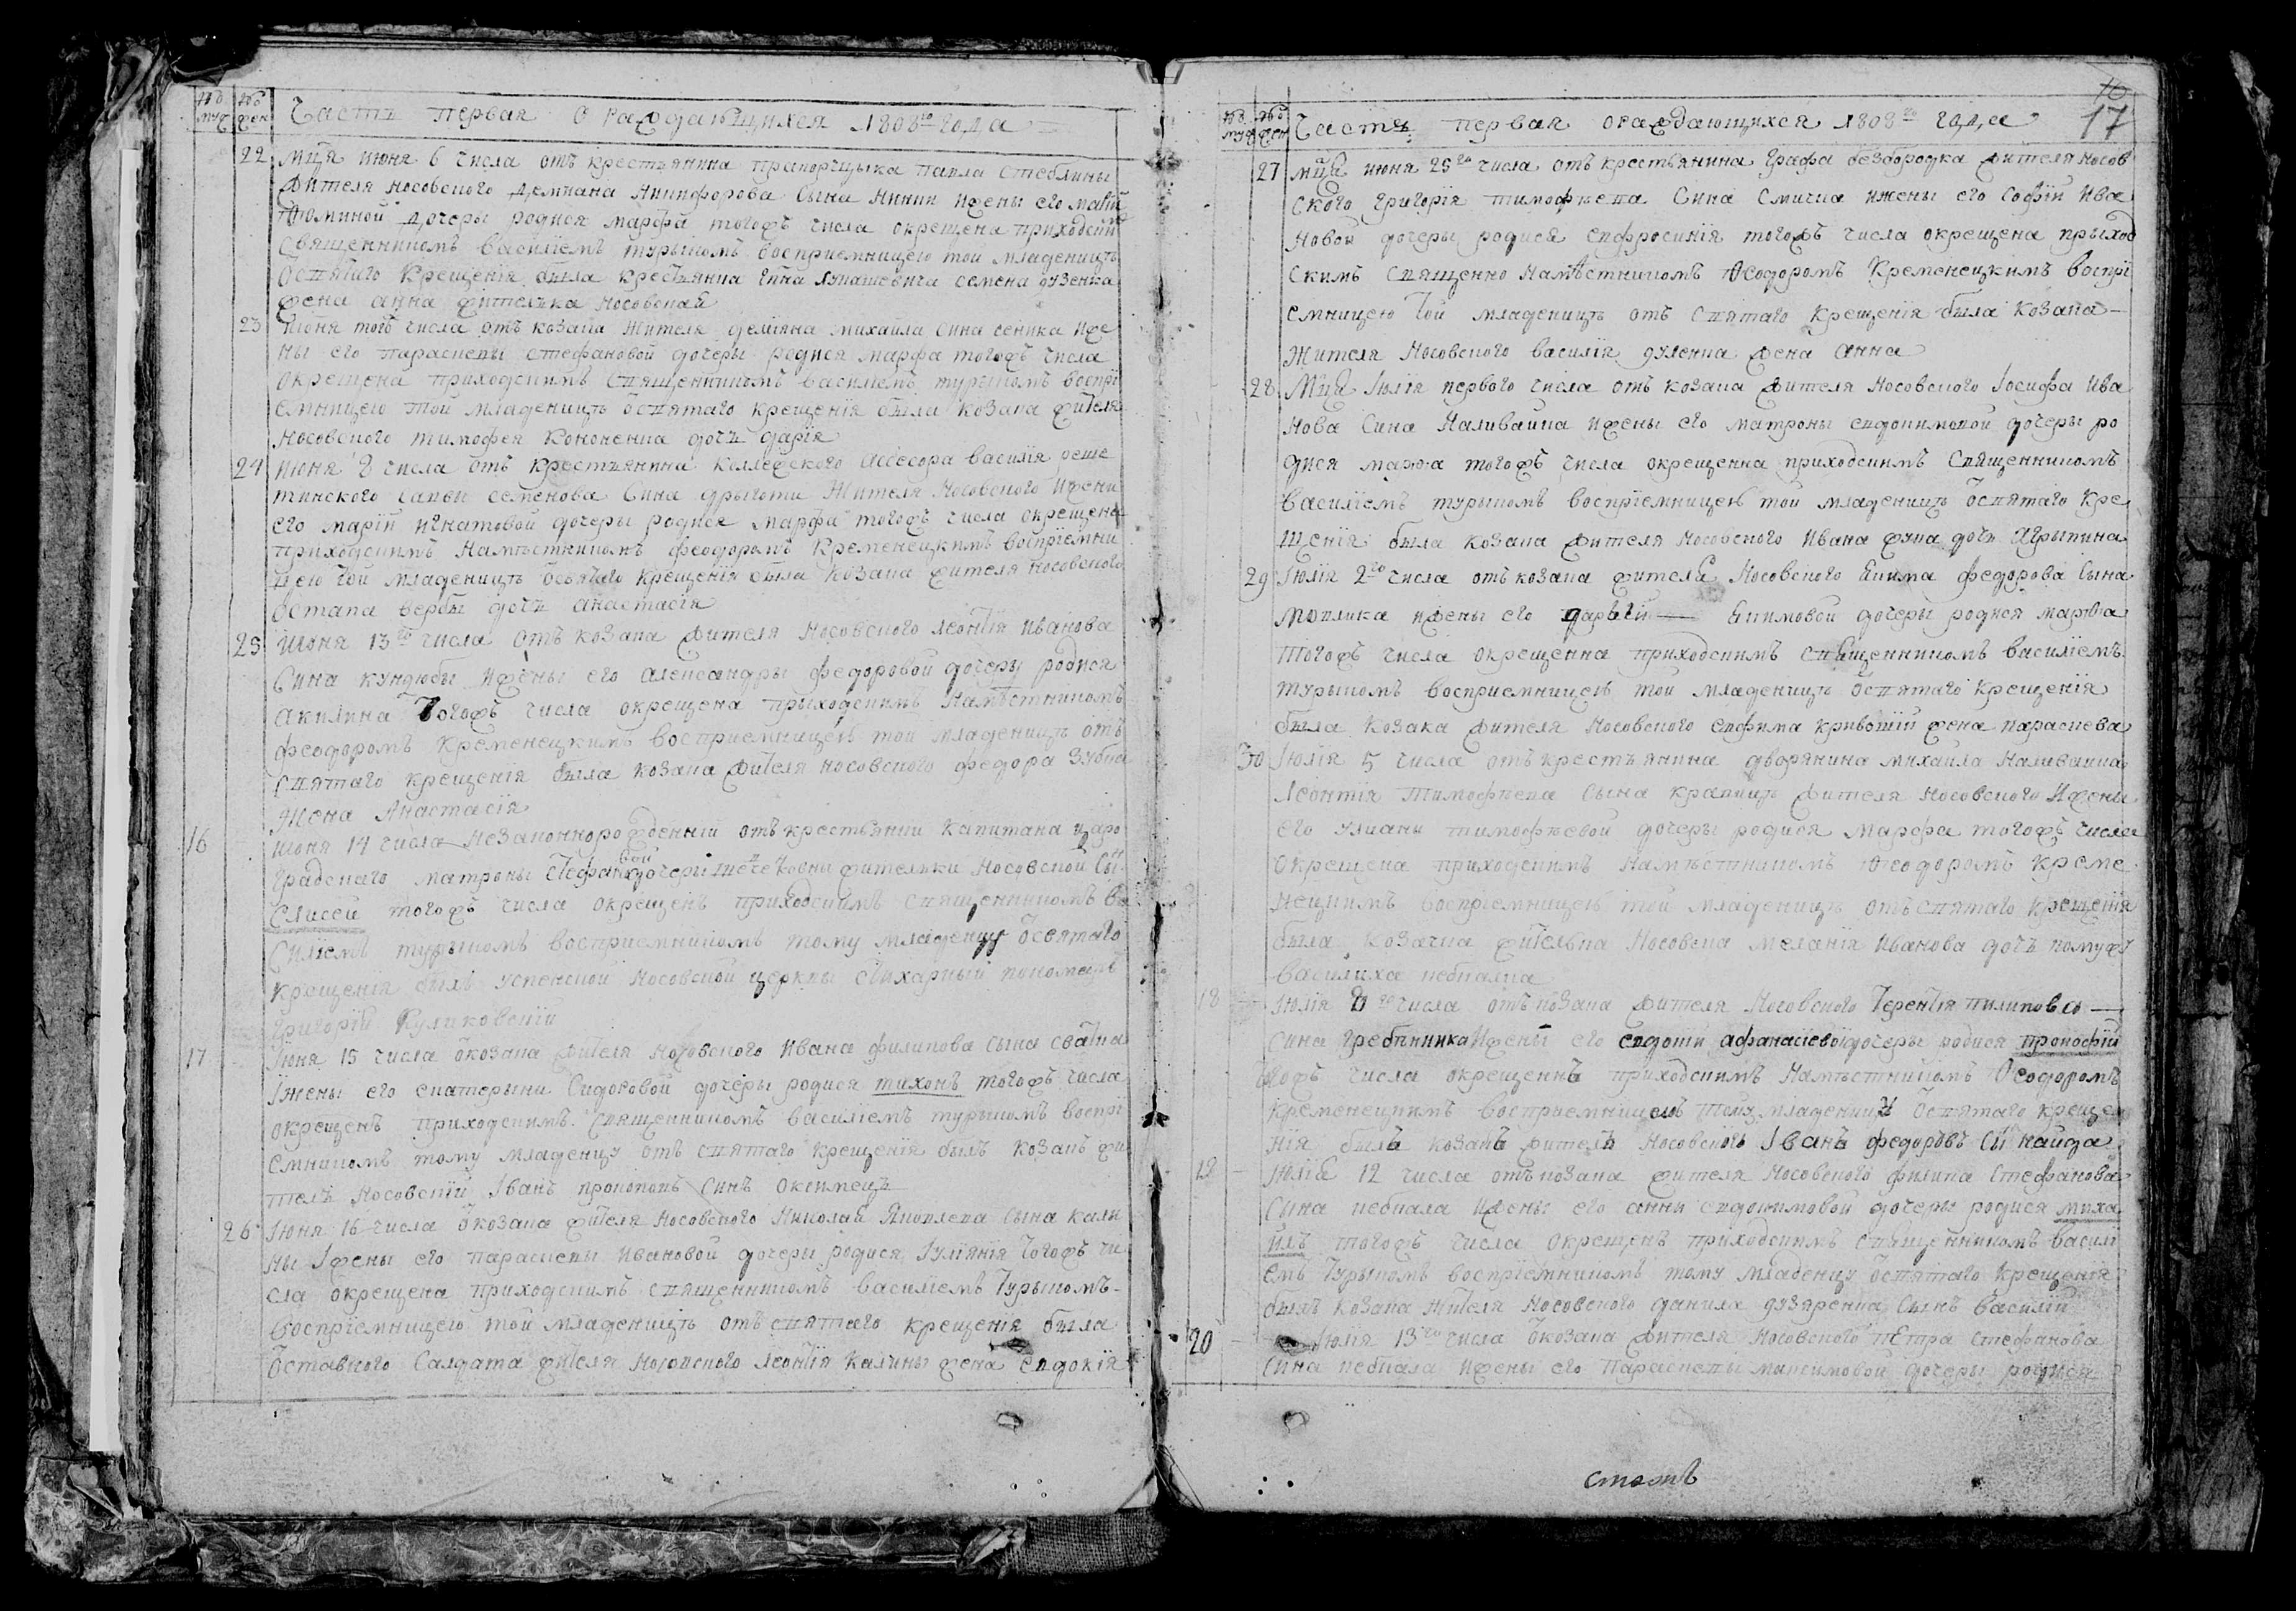 Часть первая О раждающихся 1808го года
22 мца июня 6 числа отъ крестьянина прапорщыка павла стеблины
жителя носовского демиана никифорова сына жены его
дочеры родися марфа тогожъ числа окрещена приходским
священникомъ василиемъ турыномъ восприемницею той младеницѣ
ѿ святаго крещенія была крестьянина семена
жена анна жителька носовская
23 июня тогъ числа отъ козака жителя деміяна михайла сина сеника иже
ны его параскевы стефановой дочеры родися марфа тогожъ числа
окрещена приходскимъ священникомъ василиемъ турыномъ воспрі
емницею той младеницѣ ѿ святаго крещенія была козака жителя
носовского тимофея кононенка дочь дарія
24 июня 8 числа отъ крестьянина коллежского ассесора василія реше
тинского савы семенова сина жителя носовского ижени
его маріи игнатовой дочеры родися марфа тогожъ числа окрещена
приходскимъ намѣстникомъ феодоромъ кременецкимъ воспріемни
цею той младеницѣ ѿ святаго крещенія была козака жителя носовского
остапа вербы дочь анастасія
25 июня 13го числа отъ козака жителя носовского леонтія иванова
сина кундюбы ижены его александры федоровой дочеры родися
акилина тогожъ числа окрещена прыходскимъ намѣстникомъ
феодоромъ кременецкимъ восприемницею той младеницѣ отъ
святаго крещенія была козака жителя носовского федора зубка
жена Анастасія
16 июня 14 числа незаконнорожденній отъ крестьянки капитана
матроны стефановой дочери жительки носовской сы
елисей тогожъ числа окрещенъ приходскимъ священникомъ ва
силіемъ турыномъ восприемникомъ тому младенцу ѿ святаго
крещенія былъ успенской носовской церквы стихарный пономаръ
григорій Куликовский
17 Іюня 15 числа ѿ козака жителя носовского ивана филипова сына сватка
Іжены его екатерыни Сидоровой дочеры родися тихонъ тогожъ числа
окрещенъ приходскимъ священникомъ василіемъ турыномъ воспрі
емникомъ тому младенцу отъ святаго крещенія былъ козакъ жи
тель носовский Іванъ прокоповъ синъ
26 Іюня 16 числа ѿ козака жителя носовского николая яковлева сына кали
ны Іжены его параскевы ивановой дочеры родися Іуліянія тогожъ чи
сла окрещена приходскимъ священникомъ василіемъ турыномъ
воспріемницею той младеницѣ отъ святаго крещенія была
ѿставного салдата жителя носовского леонтія калины жена евдокія
17
Часть первая ораждающихся 1808го года
27 мца июня 25го числа отъ крестьянина графа безбородка жителя носов
ского григорія тимофѣева сина ижены его софіи ива
новой дочеры родися евфросинія тогожъ числа окрещена прыход
скимъ священно намѣстникомъ Ѳеодоромъ Кременецкимъ воспрі
емницею той младеницѣ отъ святаго крещенія была козака
жителя носовского василія жена анна
28 Мца Іюлія первого числа отъ козака жителя носовского Іосифа ива
нова сина наливайка ижены его матроны евдокимовой дочеры ро
дися марѳа тогожъ числа окрещенна приходскимъ священникомъ
василіемъ турыномъ воспріемницею той младеницѣ ѿ святаго кре
щенія была козака жителя носовского ивана дочь агрыпина
29 Іюлія 2го числа отъ козака жителя носовского екима федорова сына
ижены его дарьи екимовой дочеры родися марѳа
тогожъ числа окрещенна приходскимъ священникомъ василіемъ
турыномъ восприемницею той младеницѣ ѿ святаго крещенія
была козака жителя носовского евфима кривошіи жена параскева
30 Іюлія 5 числа отъ крестьянина дворянина михаила наливайка
леонтія тимофѣева сына жителя носовского ижены
его улиани тимофѣевой дочеры родися марѳа тогожъ числа
окрещена приходскимъ намѣстникомъ Ѳеодоромъ креме
нецкимъ воспріемницею той младеницѣ отъ святаго крещенія
была козачка жителька носовска меланія иванова дочь помужу
василиха небпалка
18 Іюлія 8го числа отъ козака жителя носовского терентія пилипова
сина гребинника ижены его евдокіи афанасіевой дочеры родися прокофій
тогожъ числа окрещеннъ приходскимъ намѣстникомъ Ѳеодоромъ
кременецкимъ восприемникомъ тому младенцу ѿ святаго креще
нія былъ козакъ житель носовского Іванъ федоровъ сынъ найда
19 Іюля 12 числа отъ козака жителя носовского филипа стефанова
сына небпала ижены его анни евдокимовой дочеры родися миха
илъ тогожъ числа окрещенъ приходскимъ священникомъ васили
емъ турыномъ воспріемникомъ тому младенцу ѿ святаго крещенія
былъ козака жителя носовского данила сынъ василій
20 Іюлія 13го числа ѿ козака жителя носовского петра стефанова
сина небпала ижены его параскевы максимовой дочеры родися